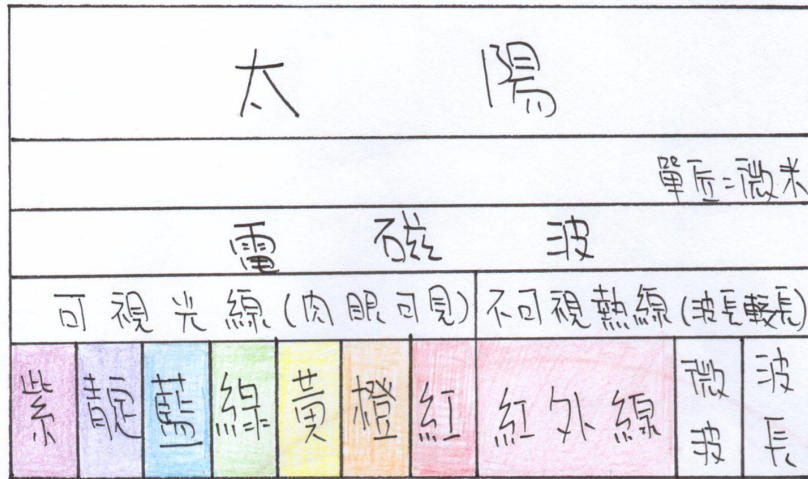 太陽
單位=微米
電磁波
可視光線(肉眼可見) 不可視熱線(波長較長)
紫 靛 藍 綠 黃 橙 紅 紅外線 微波 波長